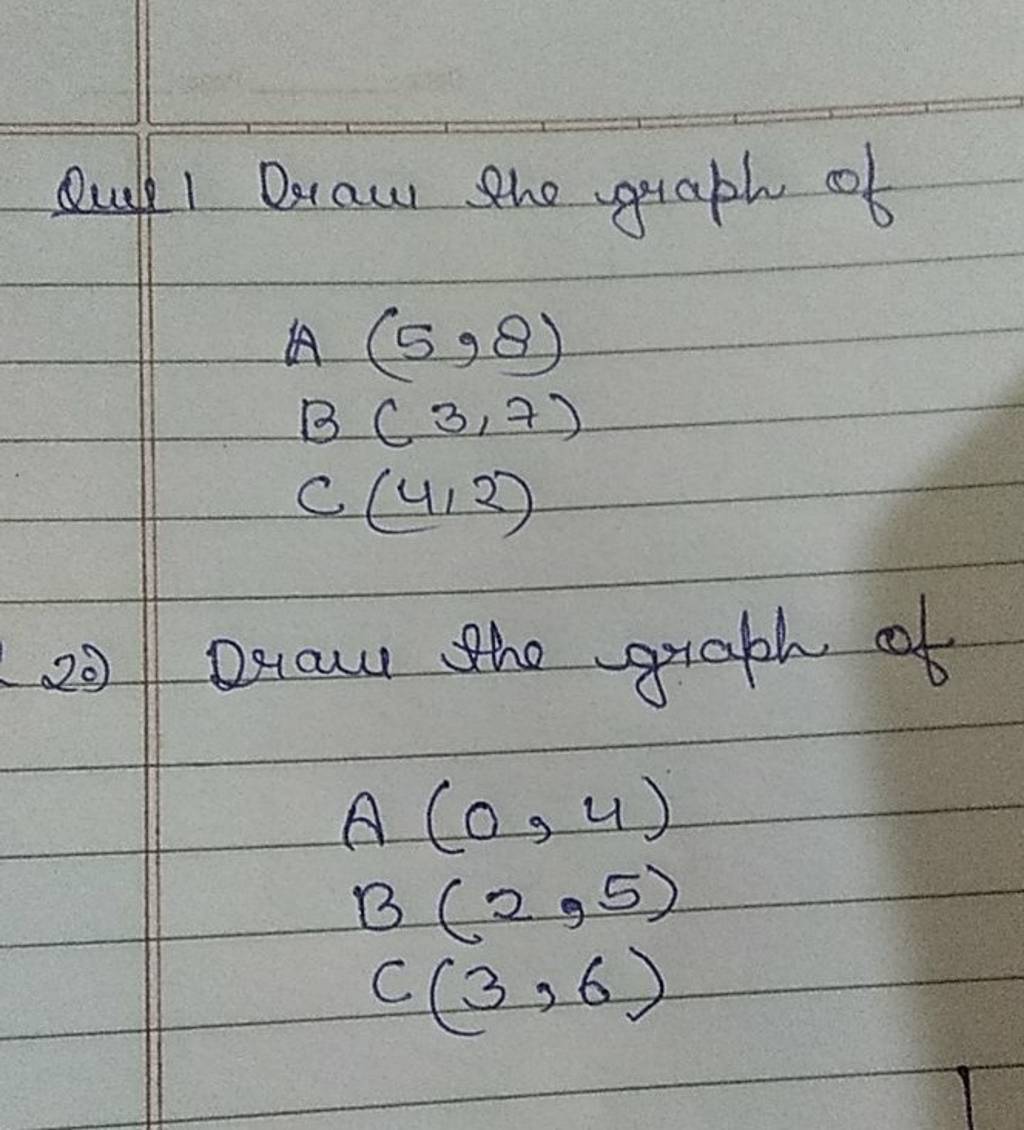 Ques 1 Draw the graph of
A (5,8)
B (3,7)
C (4,2)
2) Draw the graph of
A (0,4)
B (2,5)
C (3,6)